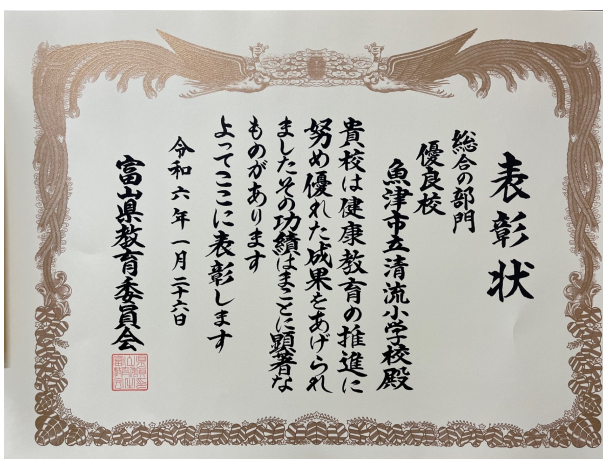 表彰状
総合の部門
優良校
魚津市立清流小学校殿
貴校は健康教育の推進に
努め優れた成果をあげられ
ましたその功績はまことに顕著な
ものがあります
よってここに表彰します
令和六年一月二十六日
富山県教育委員会